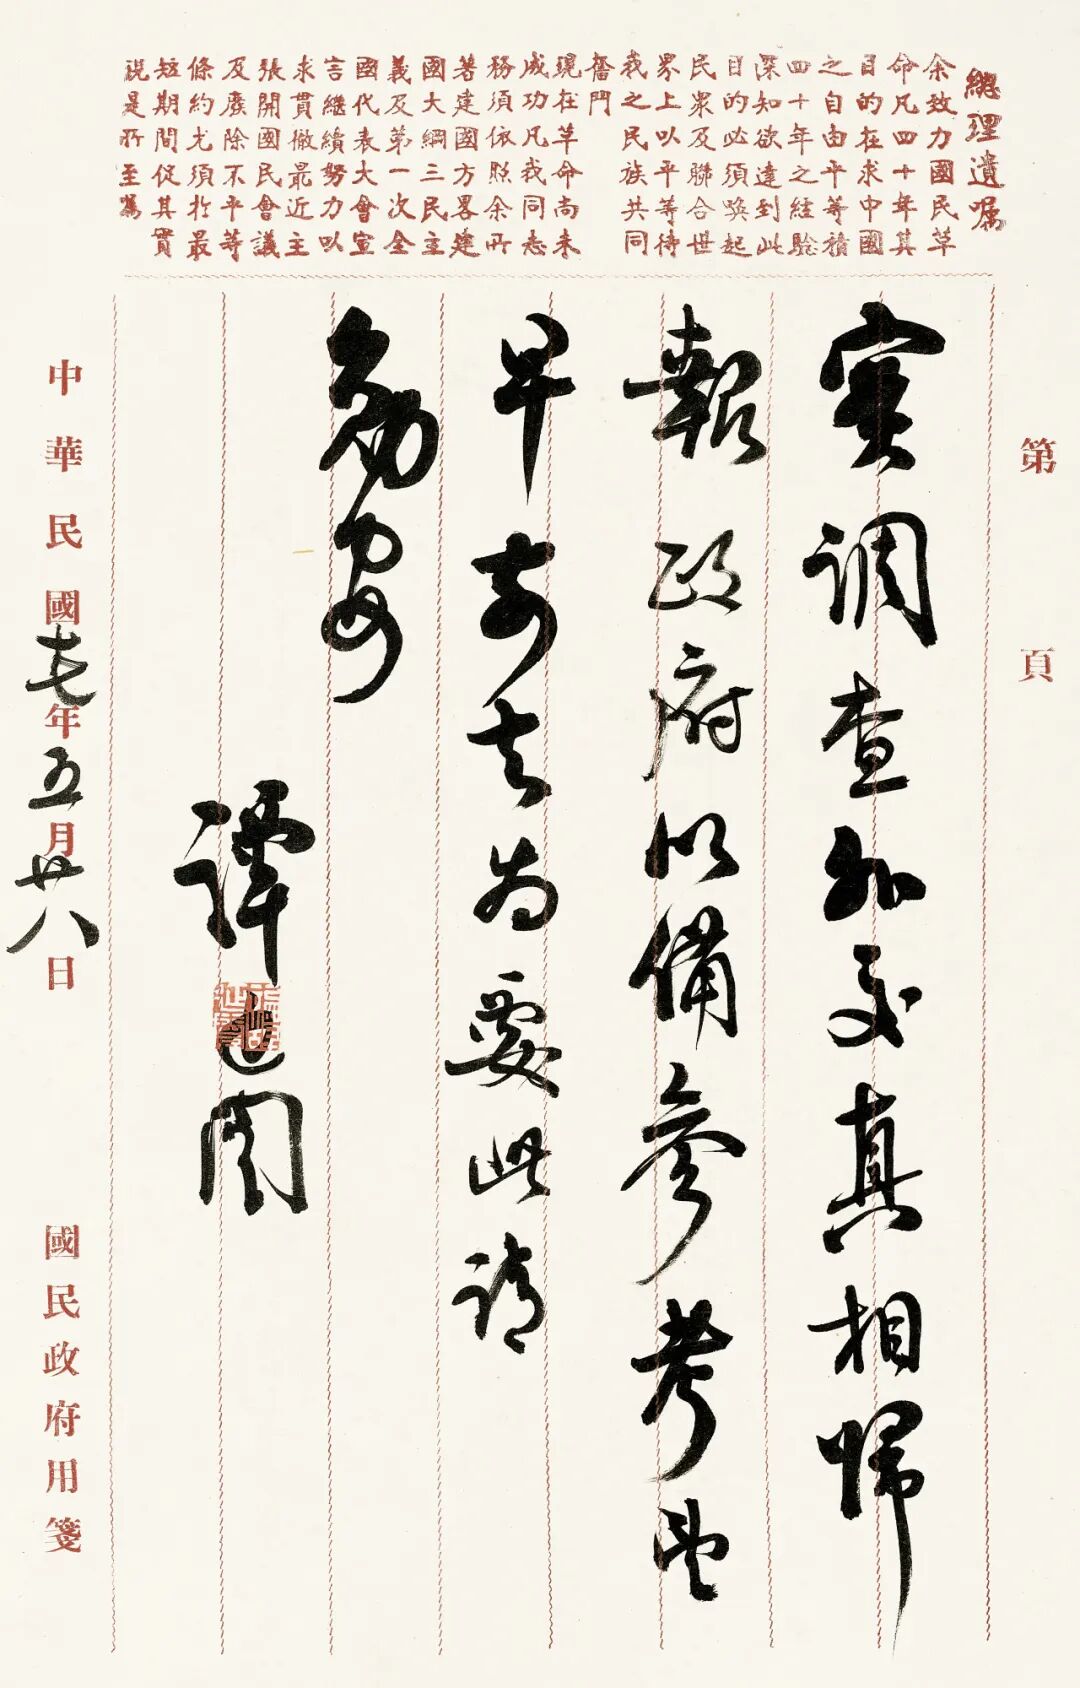 第 頁
總理遺囑
余致力國民革
命凡四十年其
目的在求中國
之自由平等積
四十年之經驗
深知欲達到此
目的必須喚起
民眾及聯合世
界上以平等待
我之民族共同
奮鬥
現在革命尚未
成功凡我同志
務須依照余所
著建國方畧建
國大綱三民主
義及第一次全
國代表大會宣
言繼續努力以
求貫徹最近主
張開國民會議
及廢除不平等
條約尤須於最
短期間促其實
現是所至囑
實調查外交真相歸
報政府以備參考望
早前去為要此請
勛安
譚延闓
中華民國十七年五月廿八日
國民政府用箋